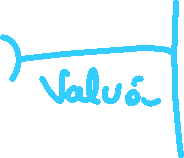 Valuá